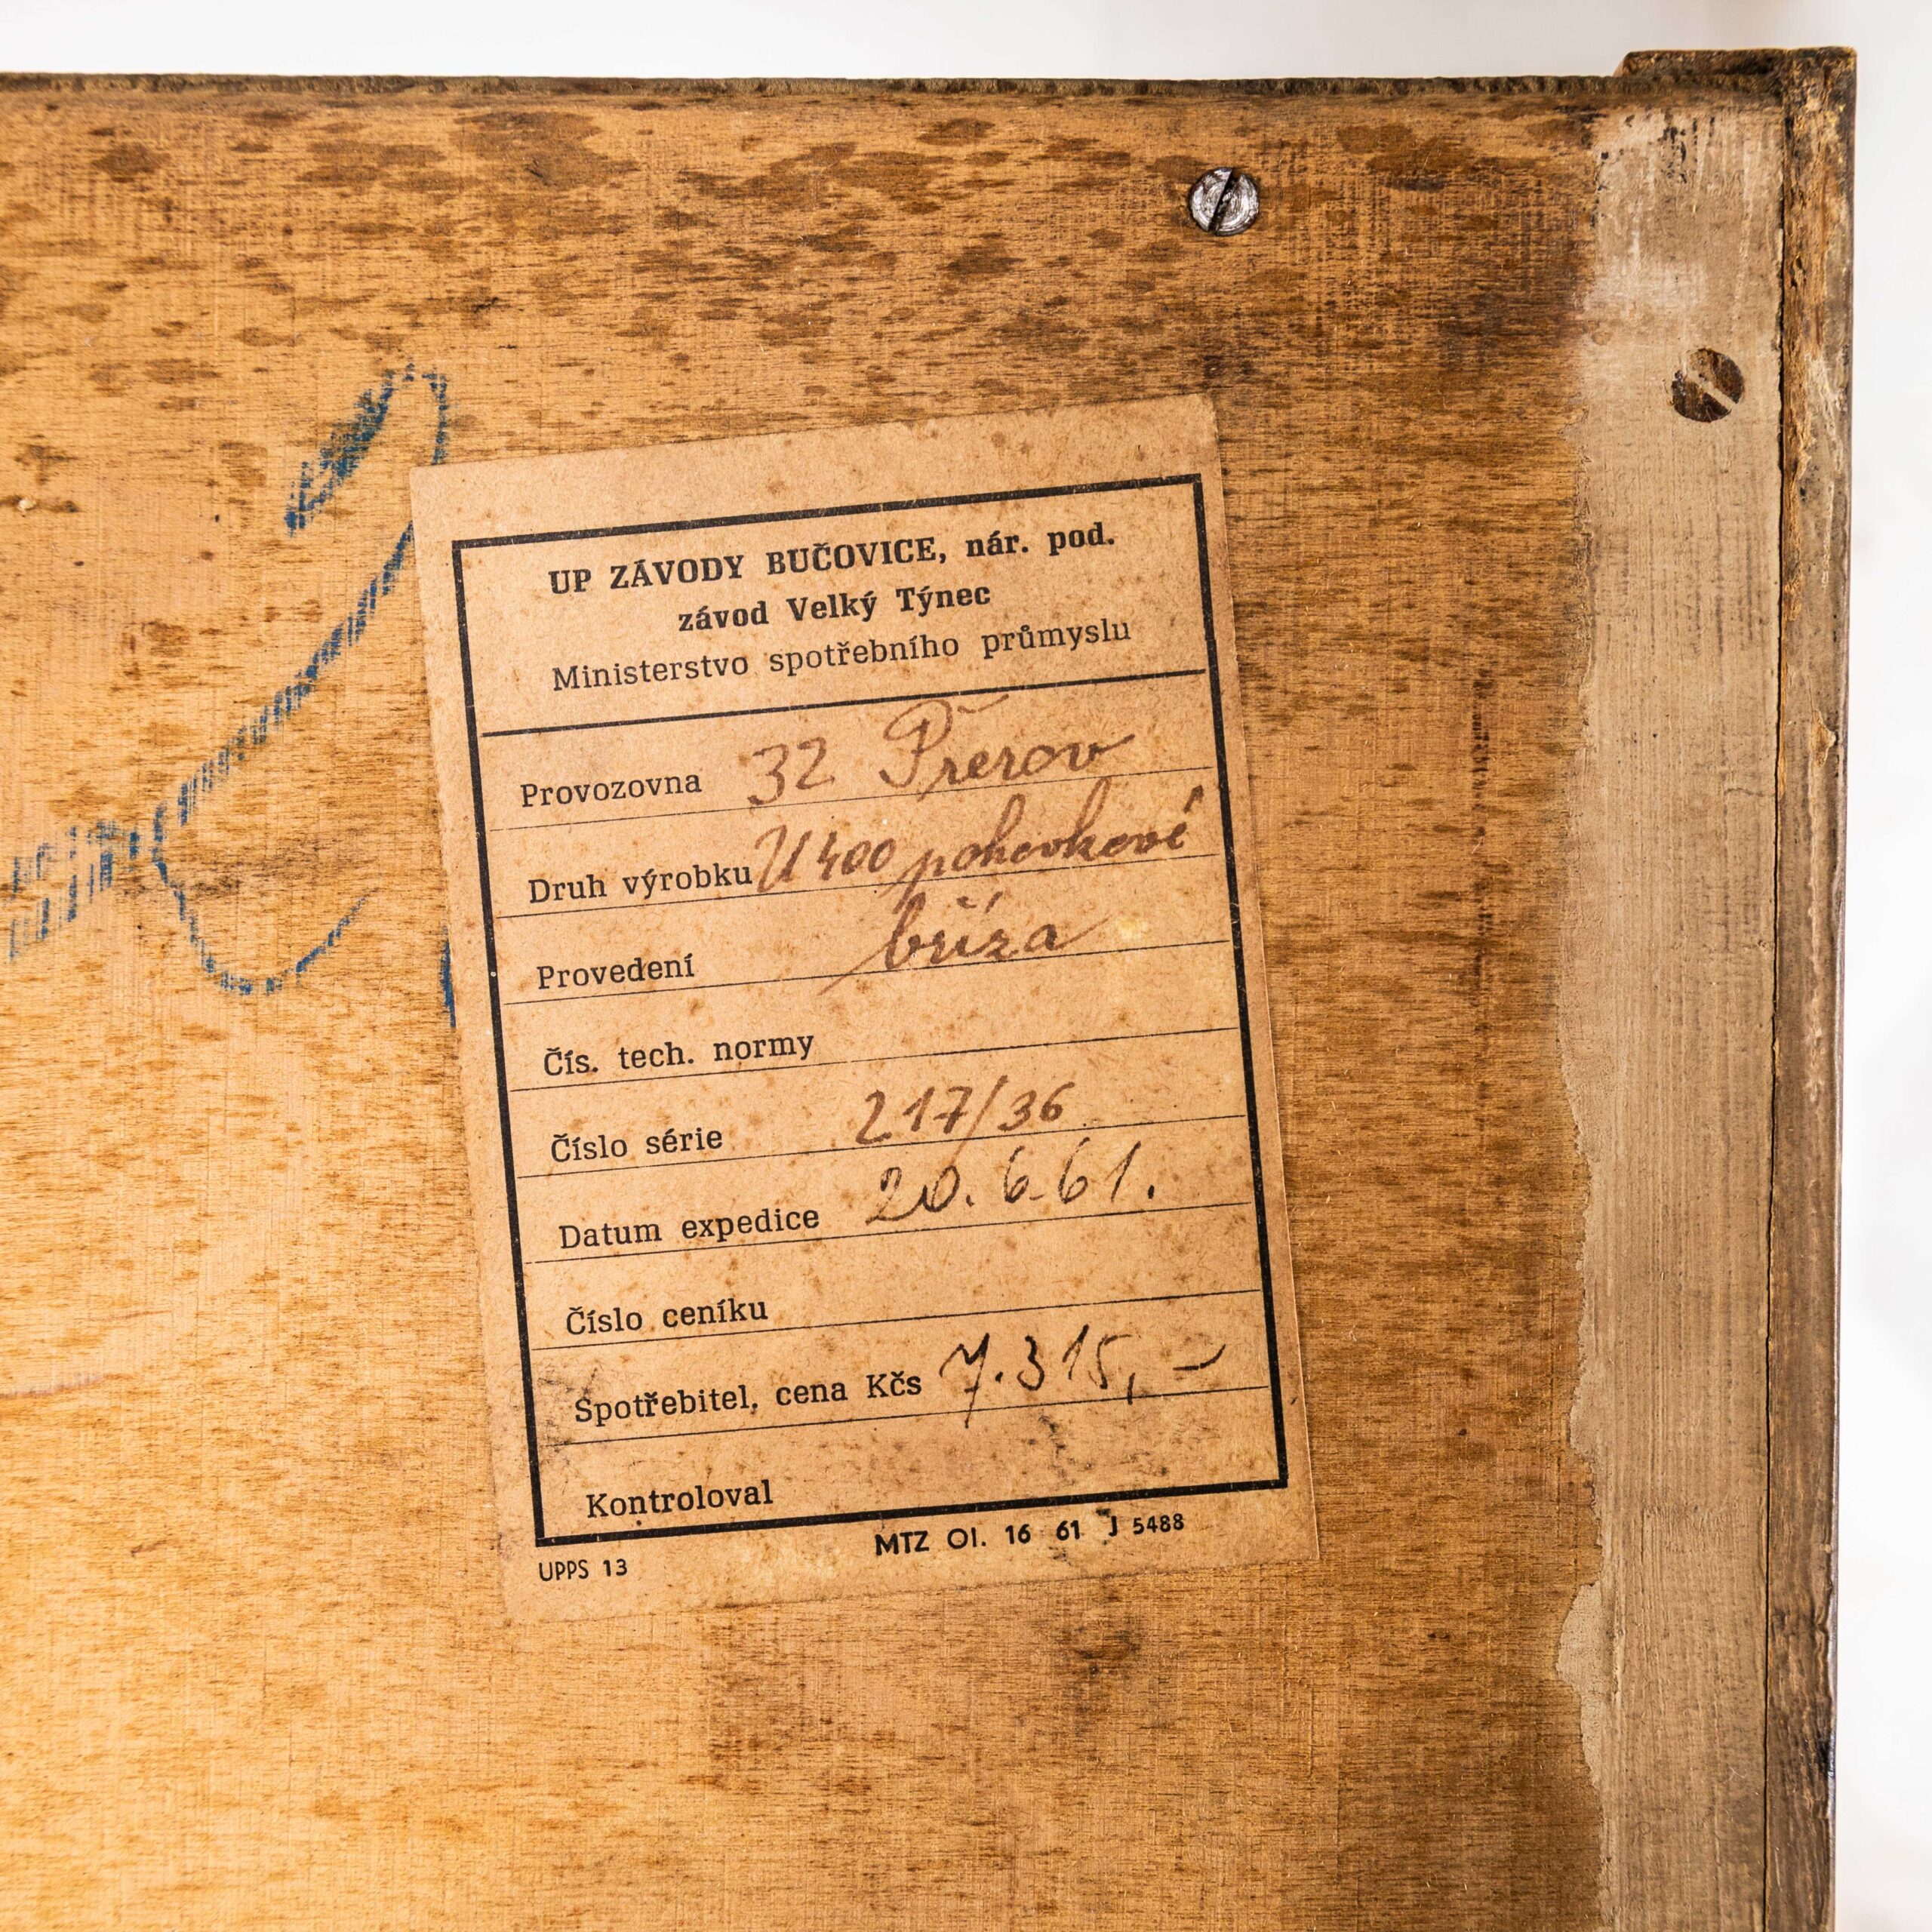 UP ZÁVODY BUČOVICE, nár. pod.
závod Velký Týnec
Ministerstvo spotřebního průmyslu
Provozovna 32 Přerov
Druh výrobku U 400 pohovkové
Provedení bříza
Čís. tech. normy
Číslo série 217/36
Datum expedice 20. 6. 61.
Číslo ceníku
Spotřebitel. cena Kčs 7.315,-
Kontroloval
UPPS 13 MTZ Ol. 16 61 J 5488